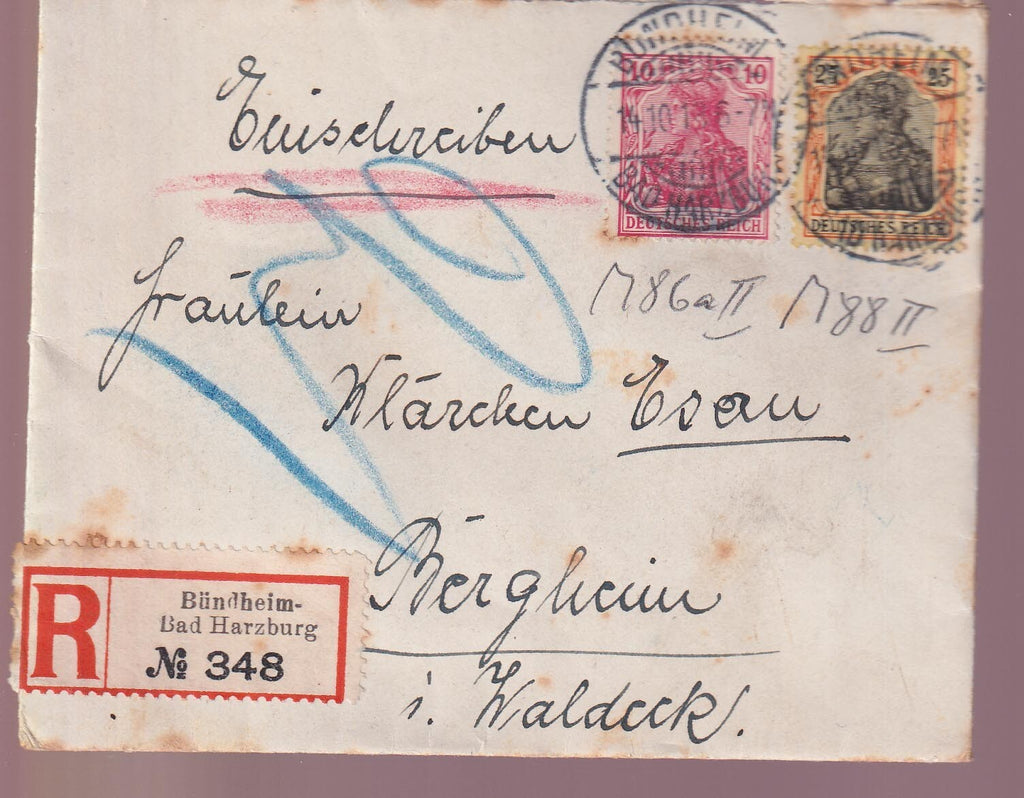 Einschreiben
BÜNDHEIM
14.10.15 6-7
BAD HARZBURG
10 10
DEUTSCHES REICH
25 25
DEUTSCHES REICH
M86aII M88II
Fräulein
Klärchen Esau
Bergheim
i. Waldeck.
R
Bündheim-
Bad Harzburg
№ 348